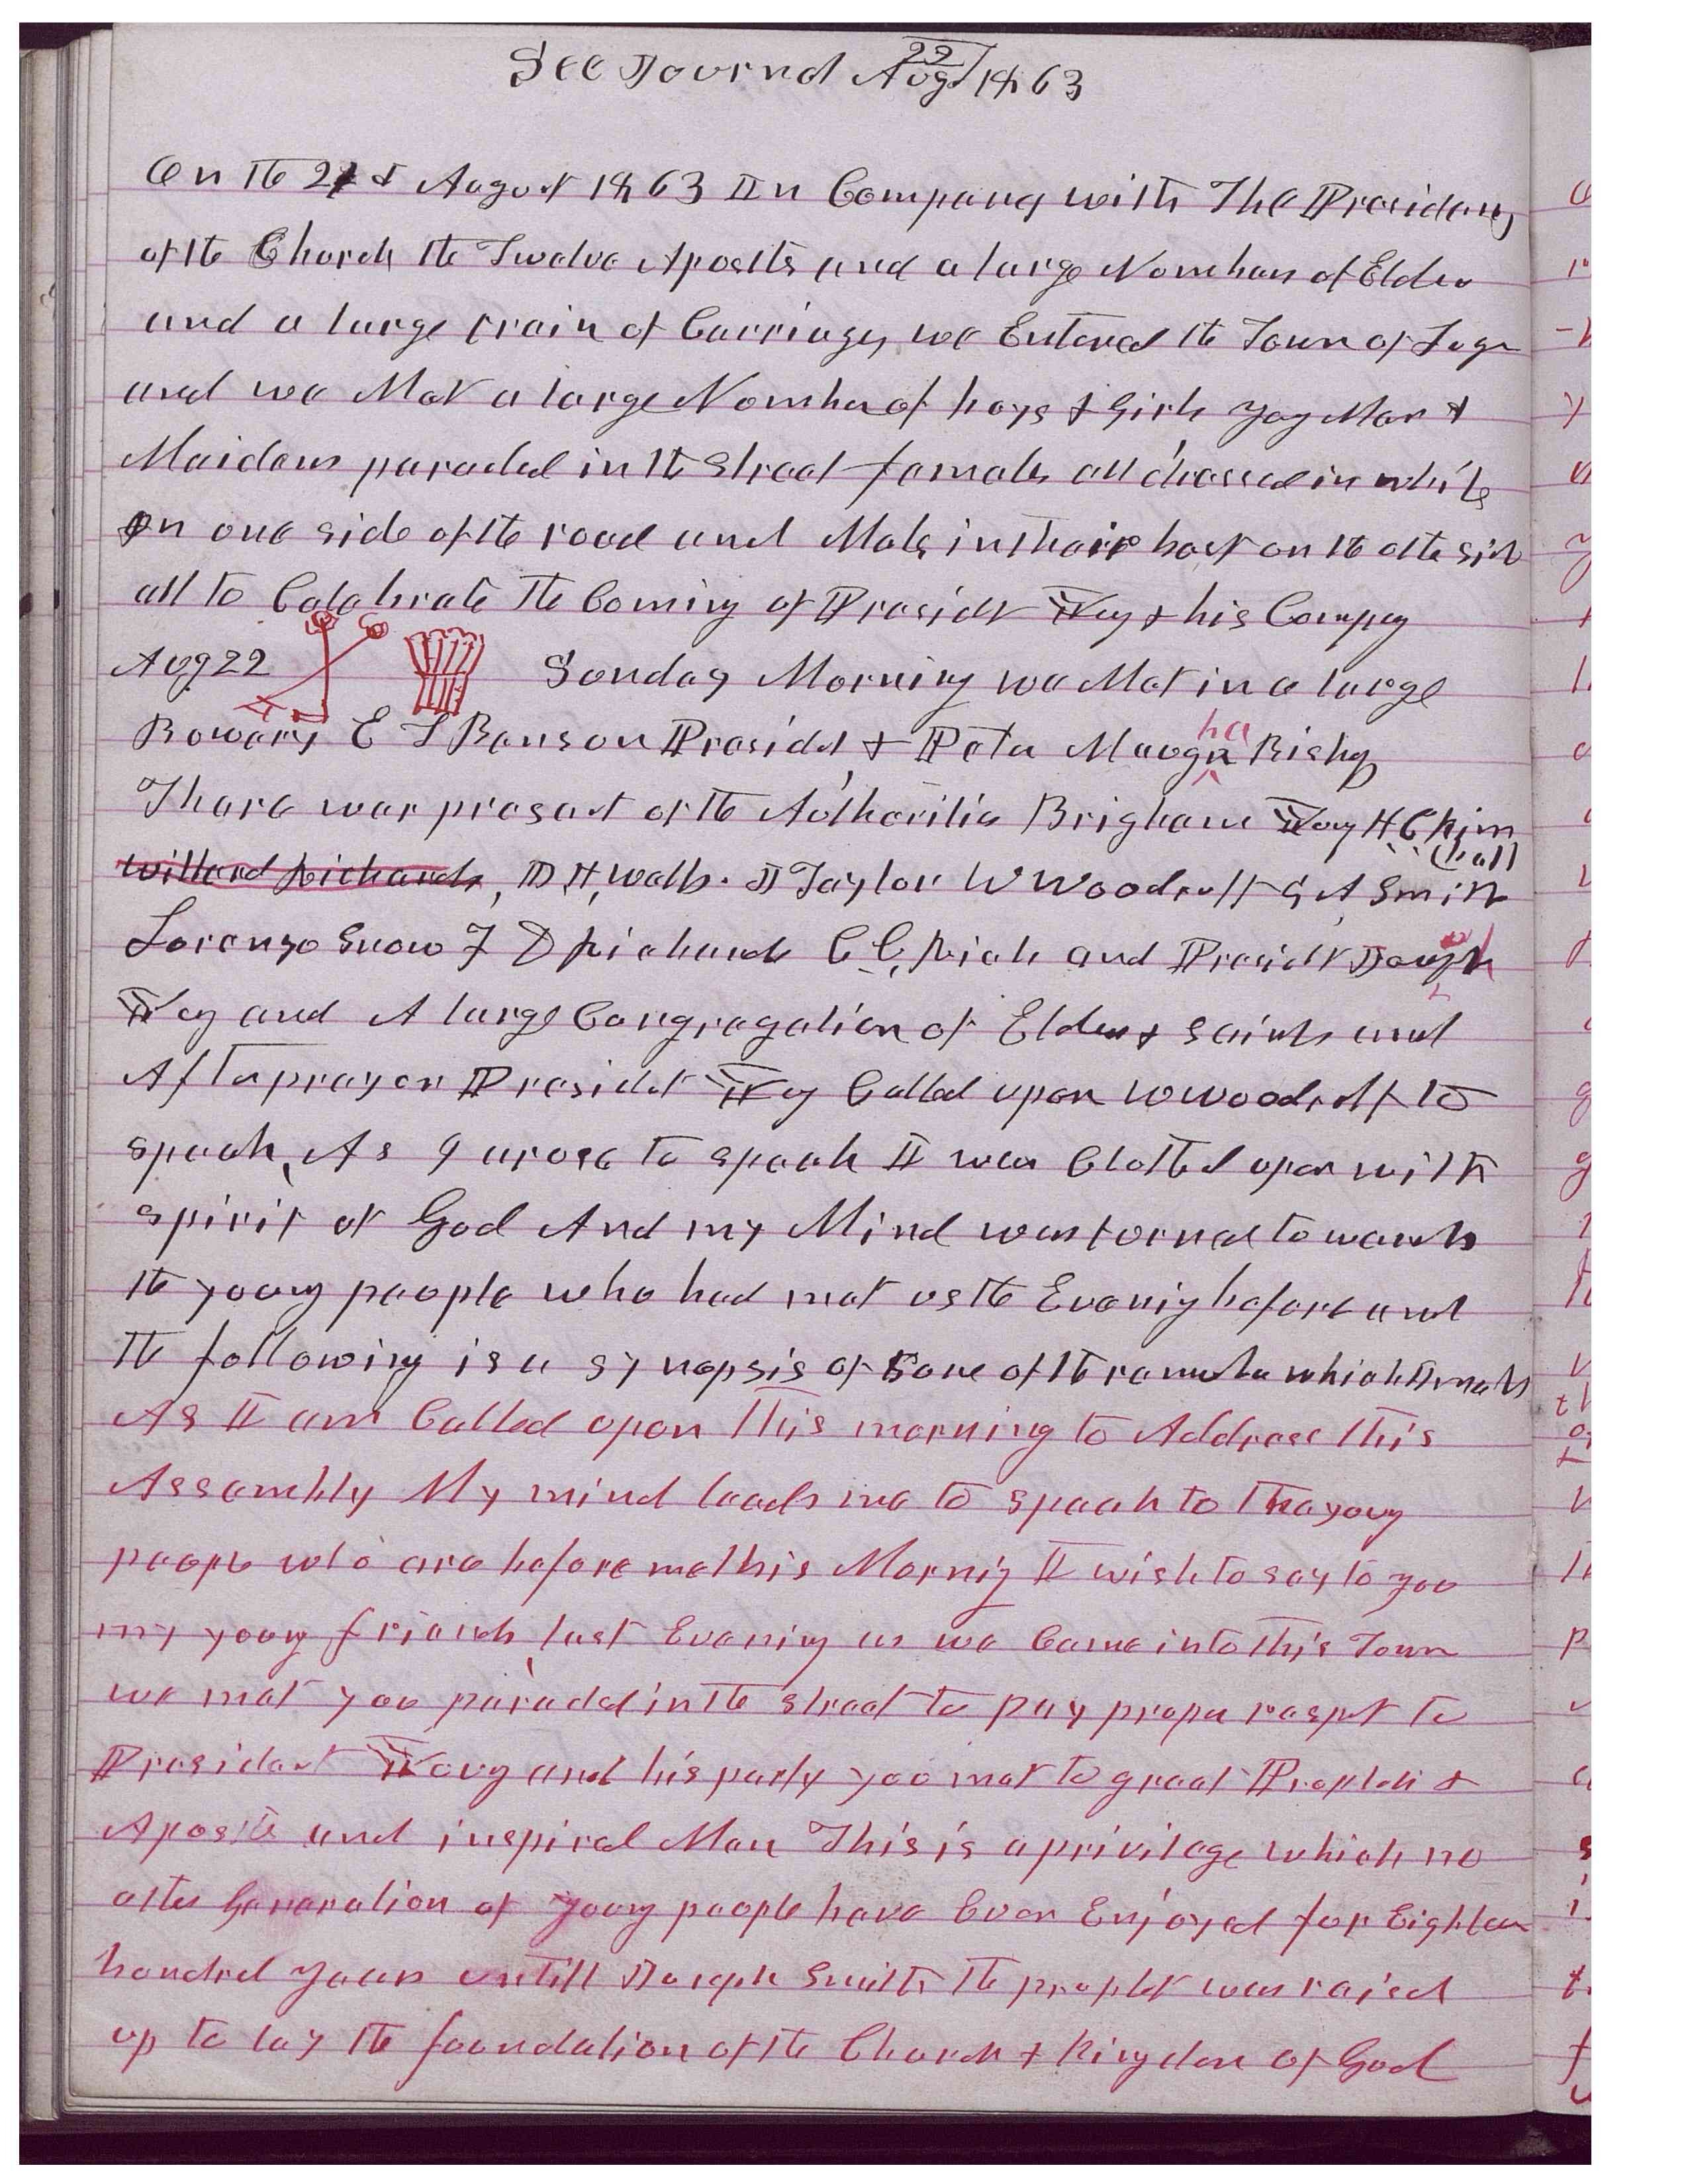 See Journal Aug 22 1863
On the 21st August 1863 In Company with The Presidency
of the Church the Twelve Apostles and a large Number of Elders
and a large train of Carriages we Entered the Town of Logan
and we Met a large Number of boys & Girls young Men &
Maidens paraded in the Street females all dressed in white
on one side of the road and Males in their best on the other side
all to Celebrate the Coming of President Young & his Company
Aug 22 Sunday Morning we Met in a large
Bowery E T Benson Presided & Peter Maughan Bishop
There was present of the Authorities Brigham Young H C Kimball
Willard Richards, D H, Wells. J Taylor W Woodruff G A Smith
Lorenzo Snow F D Richards C C, Rich and President Joseph
Young and A large Congregation of Elders & saints and
After prayer President Young Called upon W Woodruff to
speak, As I arose to speak I was Clothed upon with
spirit of God And my Mind was turned towards
the young people who had met us the Evening before and
the following is a synopsis of some of the remarks which I made
As I am Called upon this morning to Address this
Assembly My mind leads me to speak to the young
people who are before me this Morning I wish to say to you
my young friends, last Evening as we Came into this Town
we met you paraded in the street to pay proper respect to
President Young and his party you met to greet Prophets &
Apostles and inspired Men This is a privilege which no
other Generation of young people have Ever Enjoyed for Eighteen
hundred years untill Joseph Smith the prophet was raised
up to lay the foundation of the Church & Kingdom of God